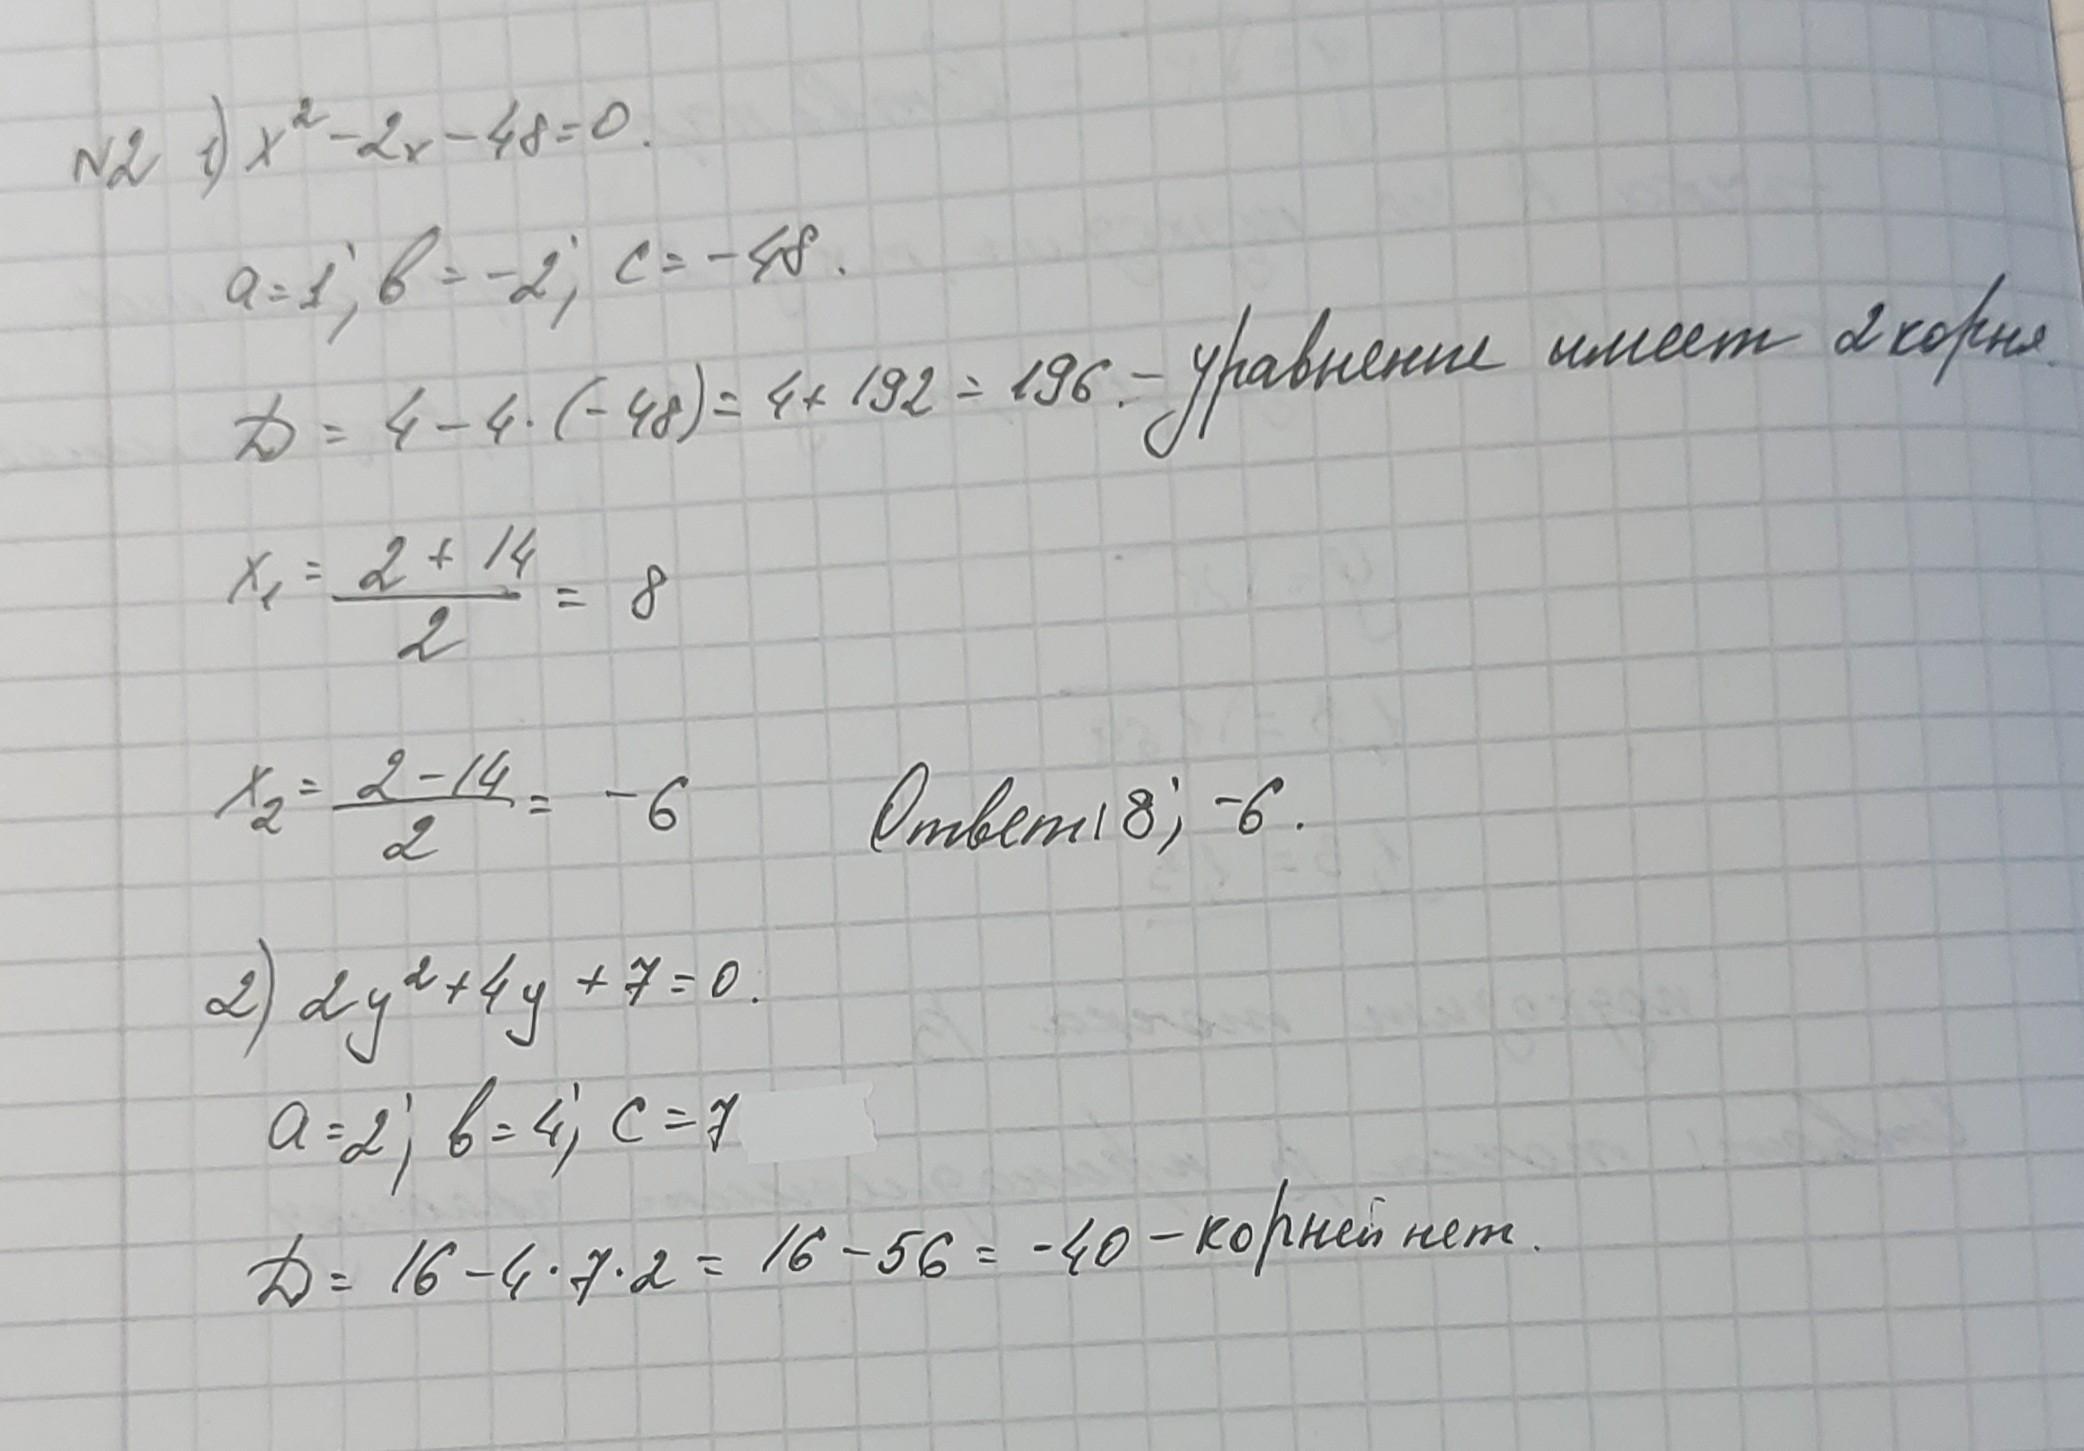 N2 1) x² - 2x - 48 = 0.
a = 1; b = -2; c = -48.
D = 4 - 4 · (-48) = 4 + 192 = 196. - уравнение имеет 2 корня.
x₁ = (2 + 14)/2 = 8
x₂ = (2 - 14)/2 = -6 Ответ: 8; -6.
2) 2y² + 4y + 7 = 0.
a = 2; b = 4; c = 7
D = 16 - 4 · 7 · 2 = 16 - 56 = -40 - корней нет.